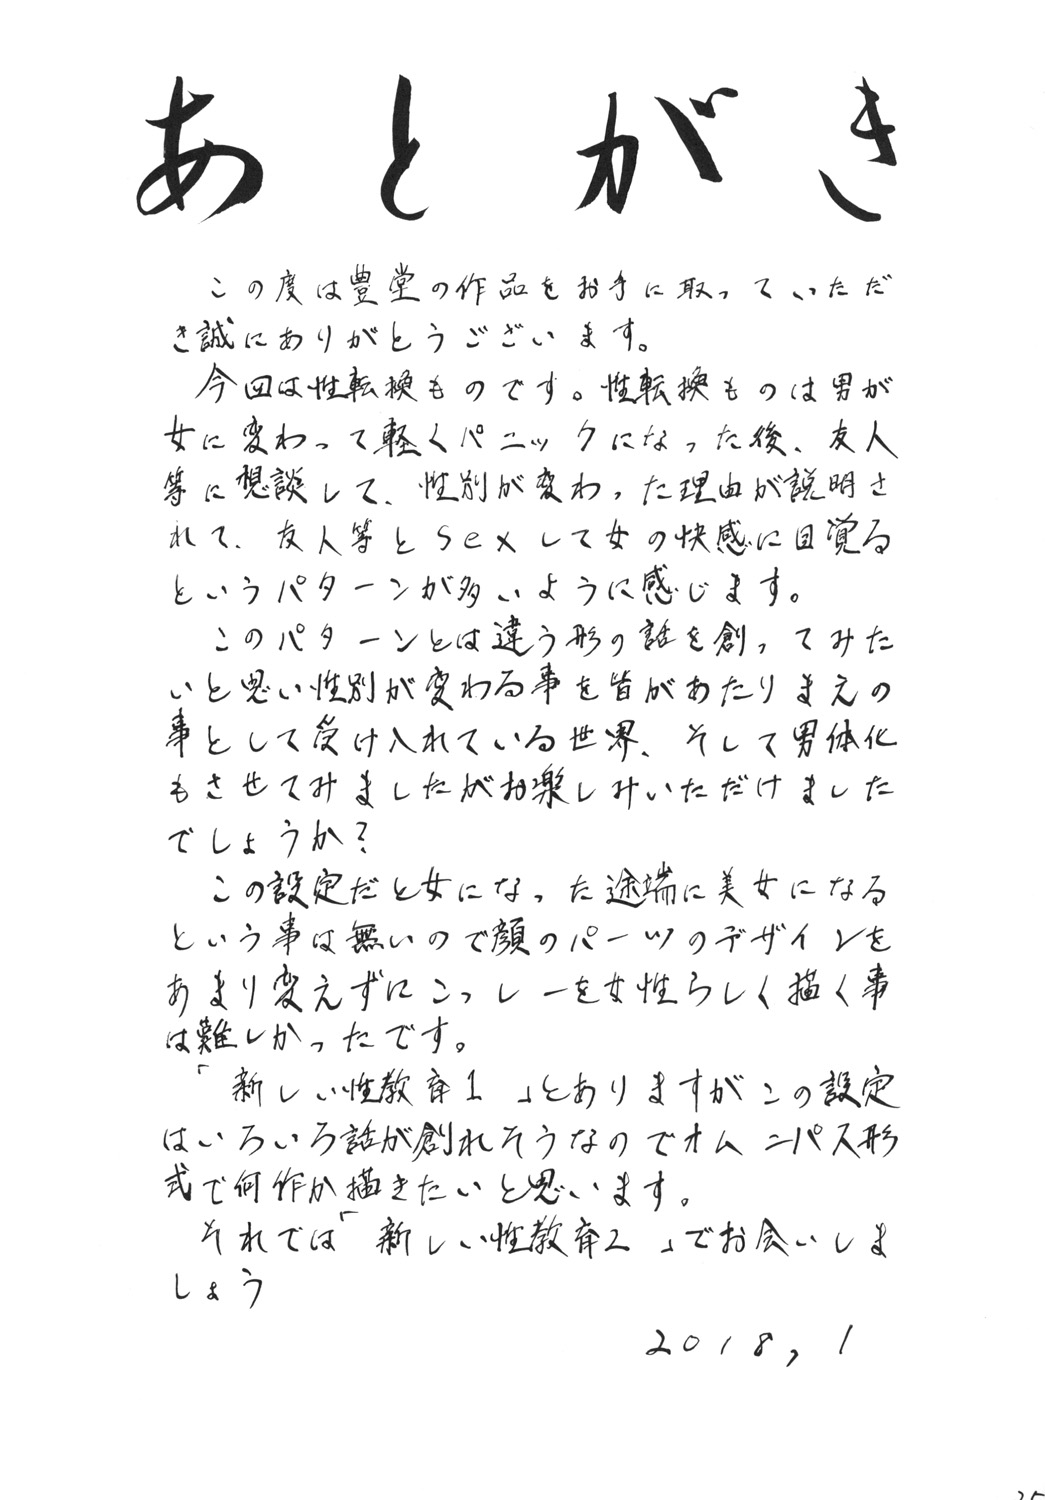 あとがき
この度は豊堂の作品をお手に取っていただ
き誠にありがとうございます。
今回は性転換ものです。性転換ものは男が
女に変わって軽くパニックになった後、友人
等に想談して、性別が変わった理由が説明さ
れて、友人等とSexして女の快感に目覚る
というパターンが多いように感じます。
このパターンとは違う形の話を創ってみた
いと思い性別が変わる事を皆があたりまえの
事として受け入れている世界、そして男体化
もさせてみましたがお楽しみいただけました
でしょうか?
この設定だと女になった途端に美女になる
という事は無いので顔のパーツのデザインを
あまり変えずにこっしーを女性らしく描く事
は難しかったです。
「新しい性教育1」とありますがこの設定
はいろいろ話が創れそうなのでオムニパス形
式で何作か描きたいと思います。
それでは「新しい性教育2」でお会いしま
しょう
2018,1